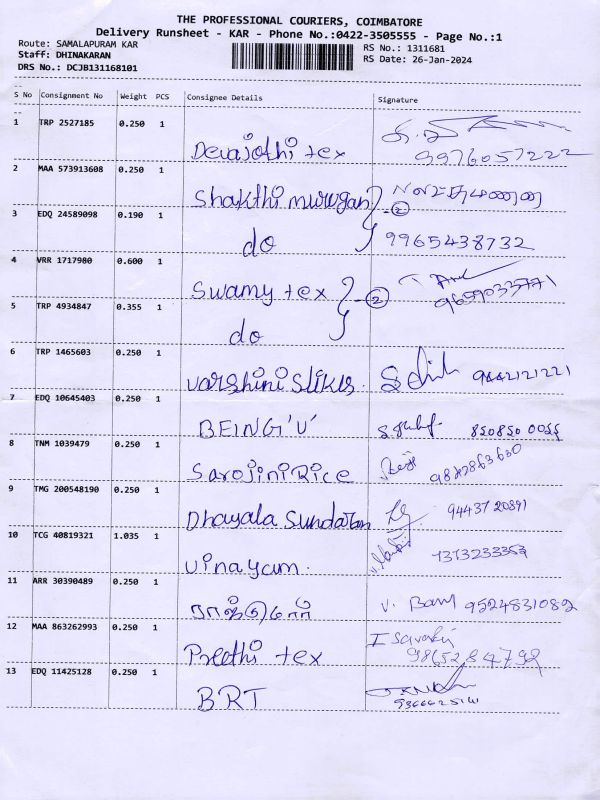 THE PROFESSIONAL COURIERS, COIMBATORE
Delivery Runsheet - KAR - Phone No.:0422-3505555 - Page No.:1
Route: SAMALAPURAM KAR
Staff: DHINAKARAN
DRS No.: DCJB131168101
RS No.: 1311681
RS Date: 26-Jan-2024
S No Consignment No Weight PCS Consignee Details Signature
1 TRP 2527185 0.250 1
Devajothi tex 9976057222
2 MAA 573913608 0.250 1
Shakthi murugan
3 EDQ 24589098 0.190 1 2
do 9965438732
4 VRR 1717980 0.600 1
Swamy tex 2
5 TRP 4934847 0.355 1
do
6 TRP 1465603 0.250 1
Varshini Slikis.
7 EDQ 10645403 0.250 1
BEING 'U'
8 TNM 1039479 0.250 1
Sarojini Rice 9842863630
9 TMG 200548190 0.250 1
Dhayala Sundaram 9443720891
10 TCG 40819321 1.035 1
Vinayam. 7373233353
11 ARR 30390489 0.250 1
V. 9524831082
12 MAA 863262993 0.250 1
Preethi tex 9865284792
13 EDQ 11425128 0.250 1
BRT